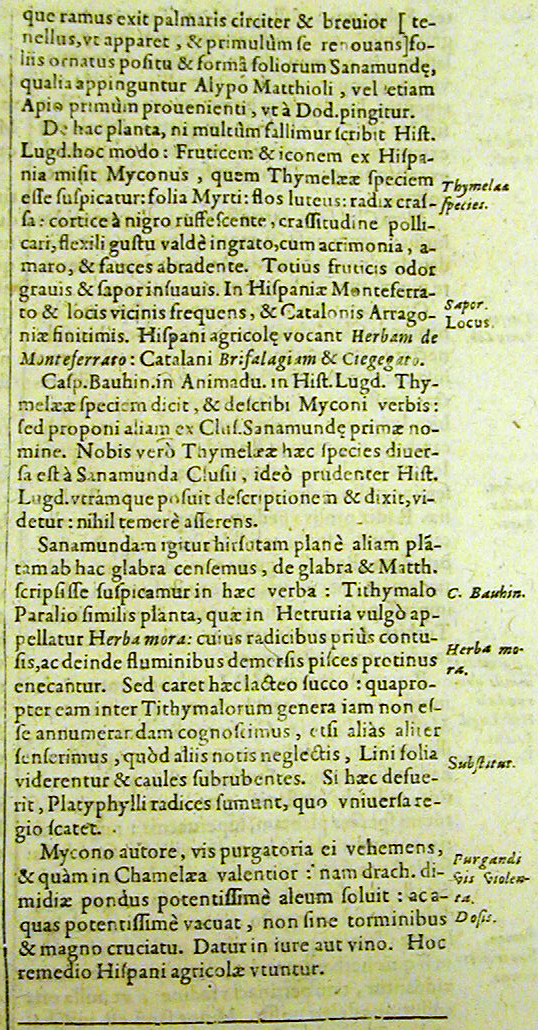 que ramus exit palmaris circiter & breuior [ te-
nellus,vt apparet , & primulùm se renouans]fo-
liis ornatus positu & formâ foliorum Sanamundę,
qualia appinguntur Alypo Matthioli , vel etiam
Apio primùm prouenienti , vt à Dod.pingitur.
De hac planta, ni multùm fallimur scribit Hist.
Lugd.hoc modo : Fruticem & iconem ex Hispa-
nia misit Myconus , quem Thymelææ speciem
esse suspicatur: folia Myrti: flos luteus: radix cras-
sa : cortice à nigro ruffescente, crassitudine polli-
cari, flexili gustu valdè ingrato,cum acrimonia, a-
maro, & fauces abradente. Totius fruticis odor
grauis & sapor insuauis. In Hispaniæ Monteferra-
to & locis vicinis frequens, & Catalonis Arrago-
niæ finitimis. Hispani agricolę vocant Herbam de
Monteferrato : Catalani Brifalagiam & Ciegegato.
Casp.Bauhin.in Animadu. in Hist.Lugd. Thy-
melææ speciem dicit , & describi Myconi verbis :
sed proponi aliam ex Clus.Sanamundę primæ no-
mine. Nobis verò Thymelææ hæc species diuer-
sa est à Sanamunda Clusii, ideò prudenter Hist.
Lugd.vtrámque posuit descriptionem & dixit,vi-
detur : nihil temerè asserens.
Sanamundam igitur hirsutam planè aliam plã-
tam ab hac glabra censemus , de glabra & Matth.
scripsisse suspicamur in hæc verba : Tithymalo
Paralio similis planta, quæ in Hetruria vulgò ap-
pellatur Herba mora: cuius radicibus priùs contu-
sis,ac deinde fluminibus demersis pisces protinus
enecantur. Sed caret hæc lacteo succo : quapro-
pter eam inter Tithymalorum genera iam non es-
se annumerandam cognoscimus , etsi aliàs aliter
senserimus , quòd aliis notis neglectis , Lini folia
viderentur & caules subrubentes. Si hæc defue-
rit , Platyphylli radices sumunt, quo vniuersa re-
gio scatet.
Mycono autore, vis purgatoria ei vehemens,
& quàm in Chamelæa valentior : nam drach. di-
midiæ pondus potentissimè aluum soluit : ac a-
quas potentissimè vacuat , non sine torminibus
& magno cruciatu. Datur in iure aut vino. Hoc
remedio Hispani agricolæ vtuntur.
Thymelææ
species.
Sapor.
Locus.
C. Bauhin.
Herba mo-
ra.
Substitut.
Purgandi
vis violen-
ta.
Dosis.